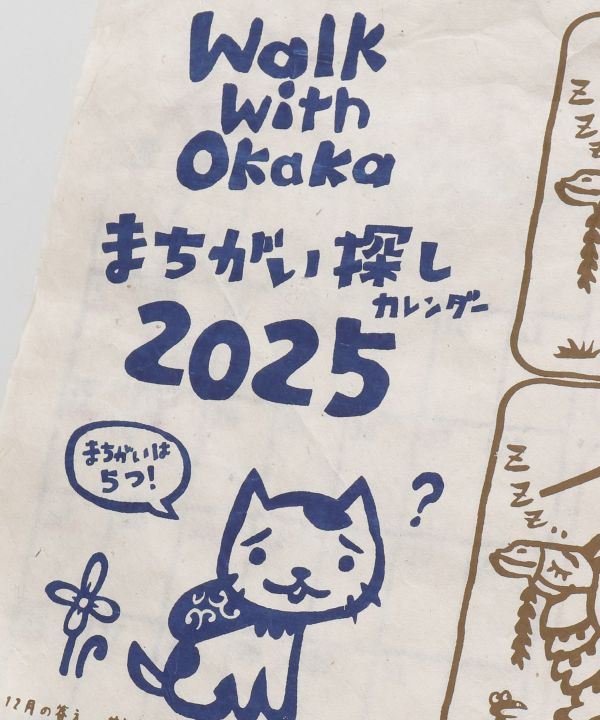 Walk
with
Okaka
まちがい探し
カレンダー
2025
まちがいは
5つ!
?
Z
Z
Z
Z
Z
Z
12月の答え